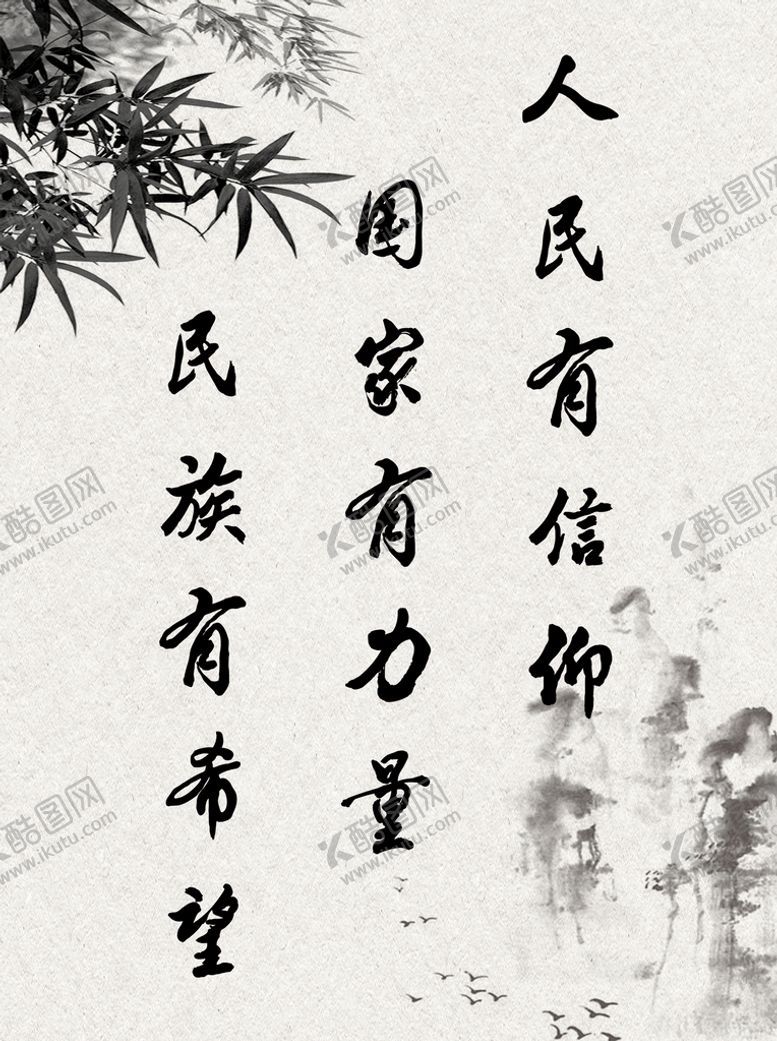 人民有信仰
国家有力量
民族有希望
酷图网
www.ikutu.com
酷图网
www.ikutu.com
酷图网
www.ikutu.com
酷图网
www.ikutu.com
酷图网
www.ikutu.com
酷图网
www.ikutu.com
酷图网
www.ikutu.com
酷图网
www.ikutu.com
酷图网
www.ikutu.com